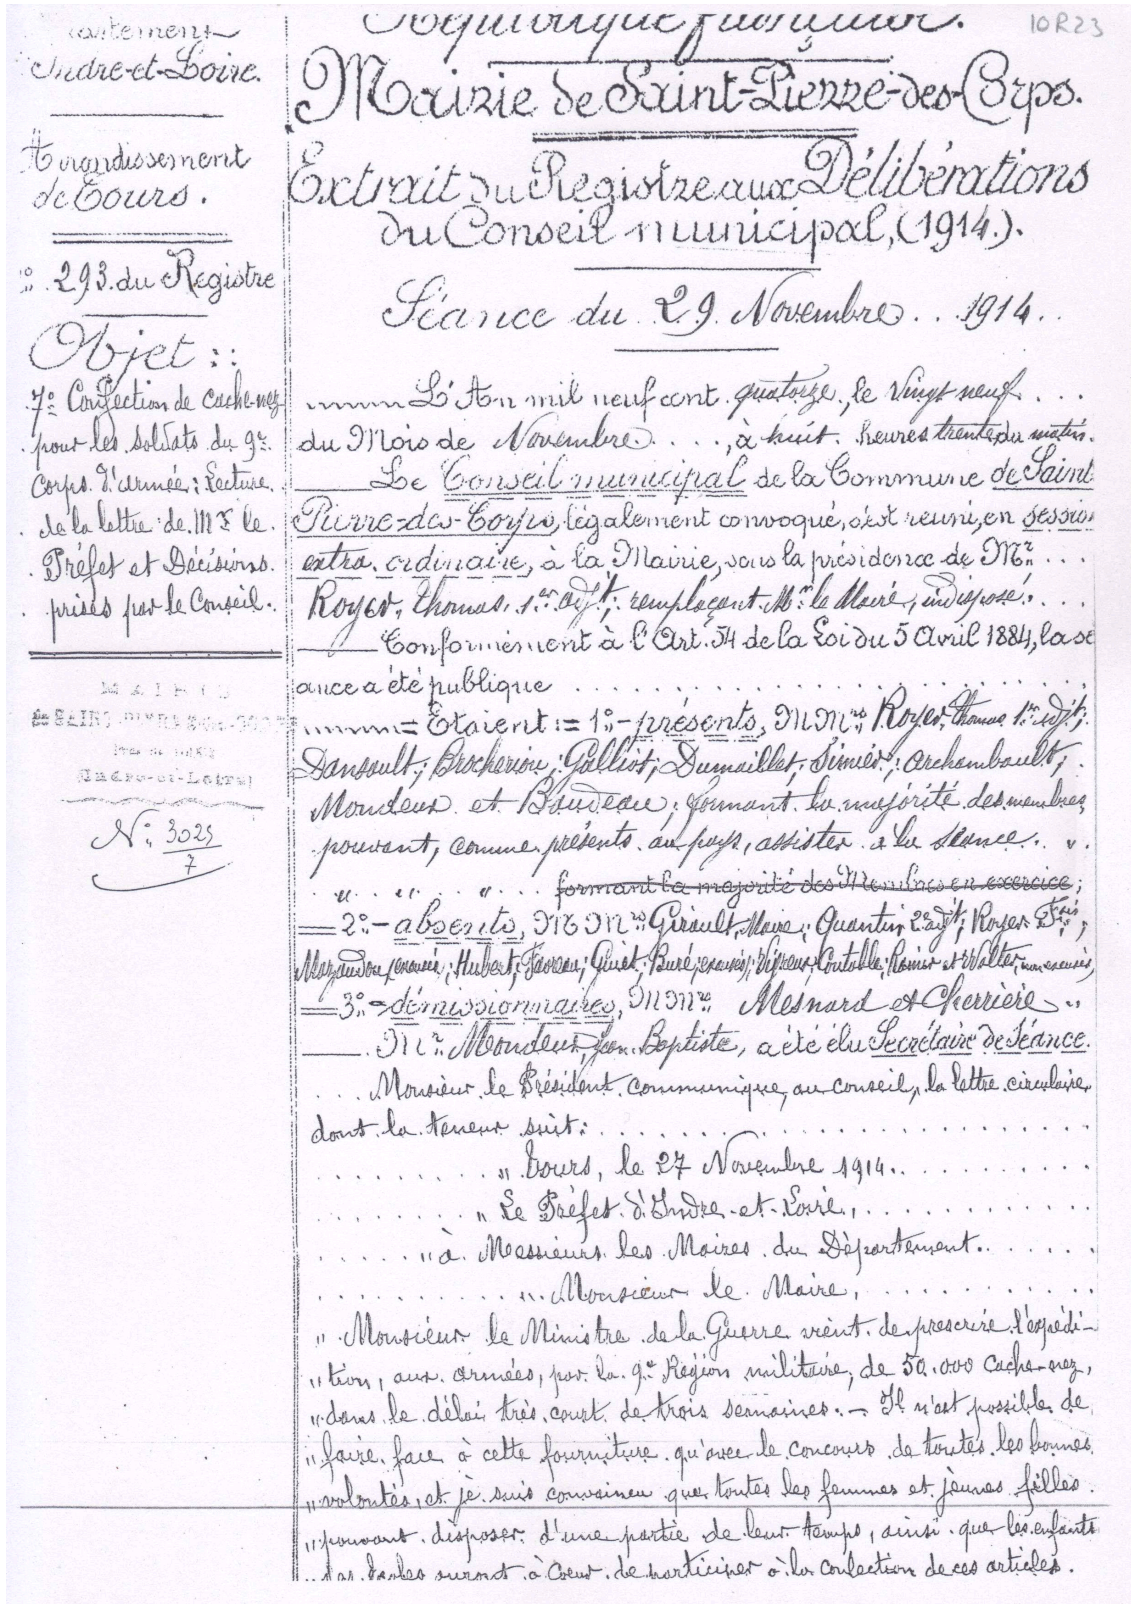 10R23
Département
Indre-et-Loire.
Arrondissement
de Tours.
293. du Registre
Objet ::
7º Confection de cache-nez
pour les soldats du 9e
Corps d'armée; Lecture
de la lettre de Mr le
Préfet et Décisions
prises par le Conseil.
MAIRIE
de SAINT-PIERRE-des-CORPS
(Indre-et-Loire)
Nº 3025
7
République française.
Mairie de Saint-Pierre-des-Corps.
Extrait du Registre aux Délibérations
du Conseil municipal, (1914.).
Séance du 29 Novembre .. 1914..
L'An mil neuf cent quatorze, le Vingt neuf ...
du Mois de Novembre ...., à huit heures trente du matin.
Le Conseil municipal de la Commune de Saint
Pierre-des-Corps, légalement convoqué, s'est réuni, en session
extra. ordinaire, à la Mairie, sous la présidence de Mr ...
Royer, Thomas, 1er adjt; remplaçant Mr le Maire, indisposé. ...
Conformément à l'Art. 54 de la Loi du 5 Avril 1884, la sé
ance a été publique ..............
= Étaient := 1º- présents, MMrs Royer, Thomas, 1er adjt;
Dansault; Brocheriou; Galliot; Dumaillet; Sirnier; Archambault;
Mondeux et Baudeau; formant la majorité des membres
pouvant, comme présents au pays, assister à la séance. ".
" " " formant la majorité des Membres en exercice;
= 2º- absents, MMrs Girault, Maire; Quantin 2e adjt; Royer Fois;
Mazaudou, excusé; Hubert; Faveau; Guiet; Buré, excusés; Vigneau; Contable; Rainier et Walter, non excusés,
= 3º = démissionnaires, MMrs Mesnard et Cherrière "
Mr Mondeux, Jean Baptiste, a été élu Secrétaire de Séance.
... Monsieur le Président communique, au conseil, la lettre circulaire
dont la teneur suit: ..............
" Tours, le 27 Novembre 1914..
" Le Préfet d'Indre-et-Loire,
" à Messieurs les Maires du Département.
" Monsieur le Maire,
" Monsieur le Ministre de la Guerre vient de prescrire l'expédi-
" tion, aux armées, par la 9e Région militaire, de 50.000 cache-nez,
" dans le délai très court de trois semaines. - Il n'est possible de
" faire face à cette fourniture qu'avec le concours de toutes les bonnes
" volontés, et je suis convaincu que toutes les femmes et jeunes filles
" pouvant disposer d'une partie de leur temps, ainsi que les enfants
" des Écoles auront à Cœur de participer à la confection de ces articles.